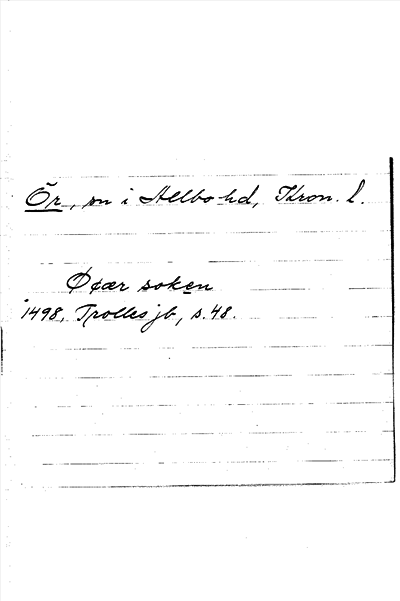 Ör, sn i Allbo hd, Kron. l.
Øør soken
1498. Trolles jb, s. 48.